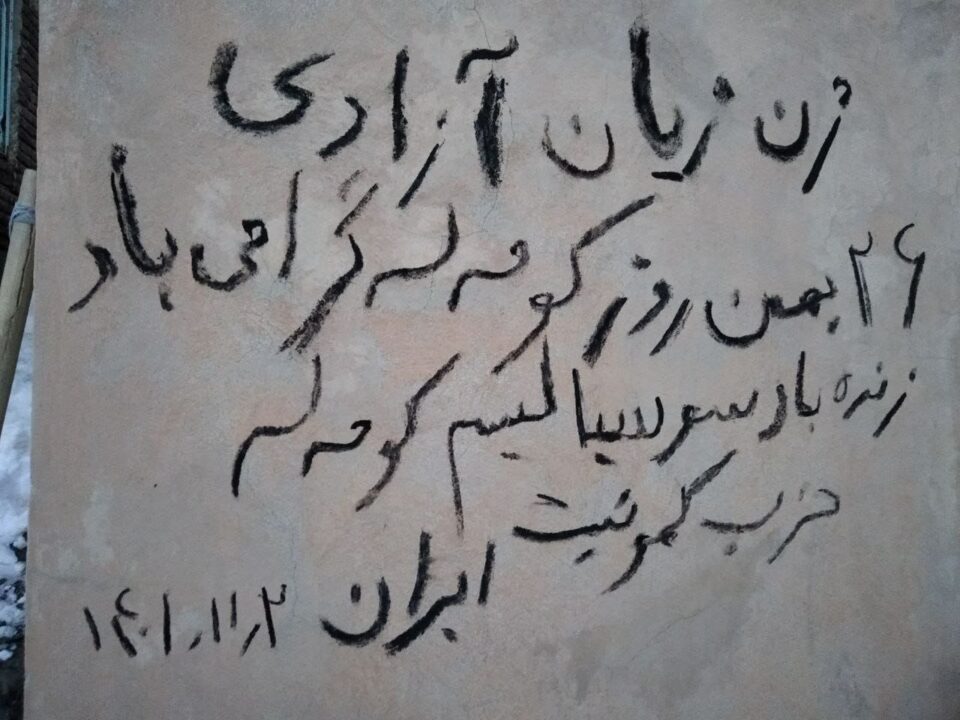 زن زیان آزادی
۲۶ بهمن روز کومه له گرامی باد
زنده باد سوسیالیسم کومه له
حزب کمونیست
ایران ۱۴۰۱٫۱۱٫۲